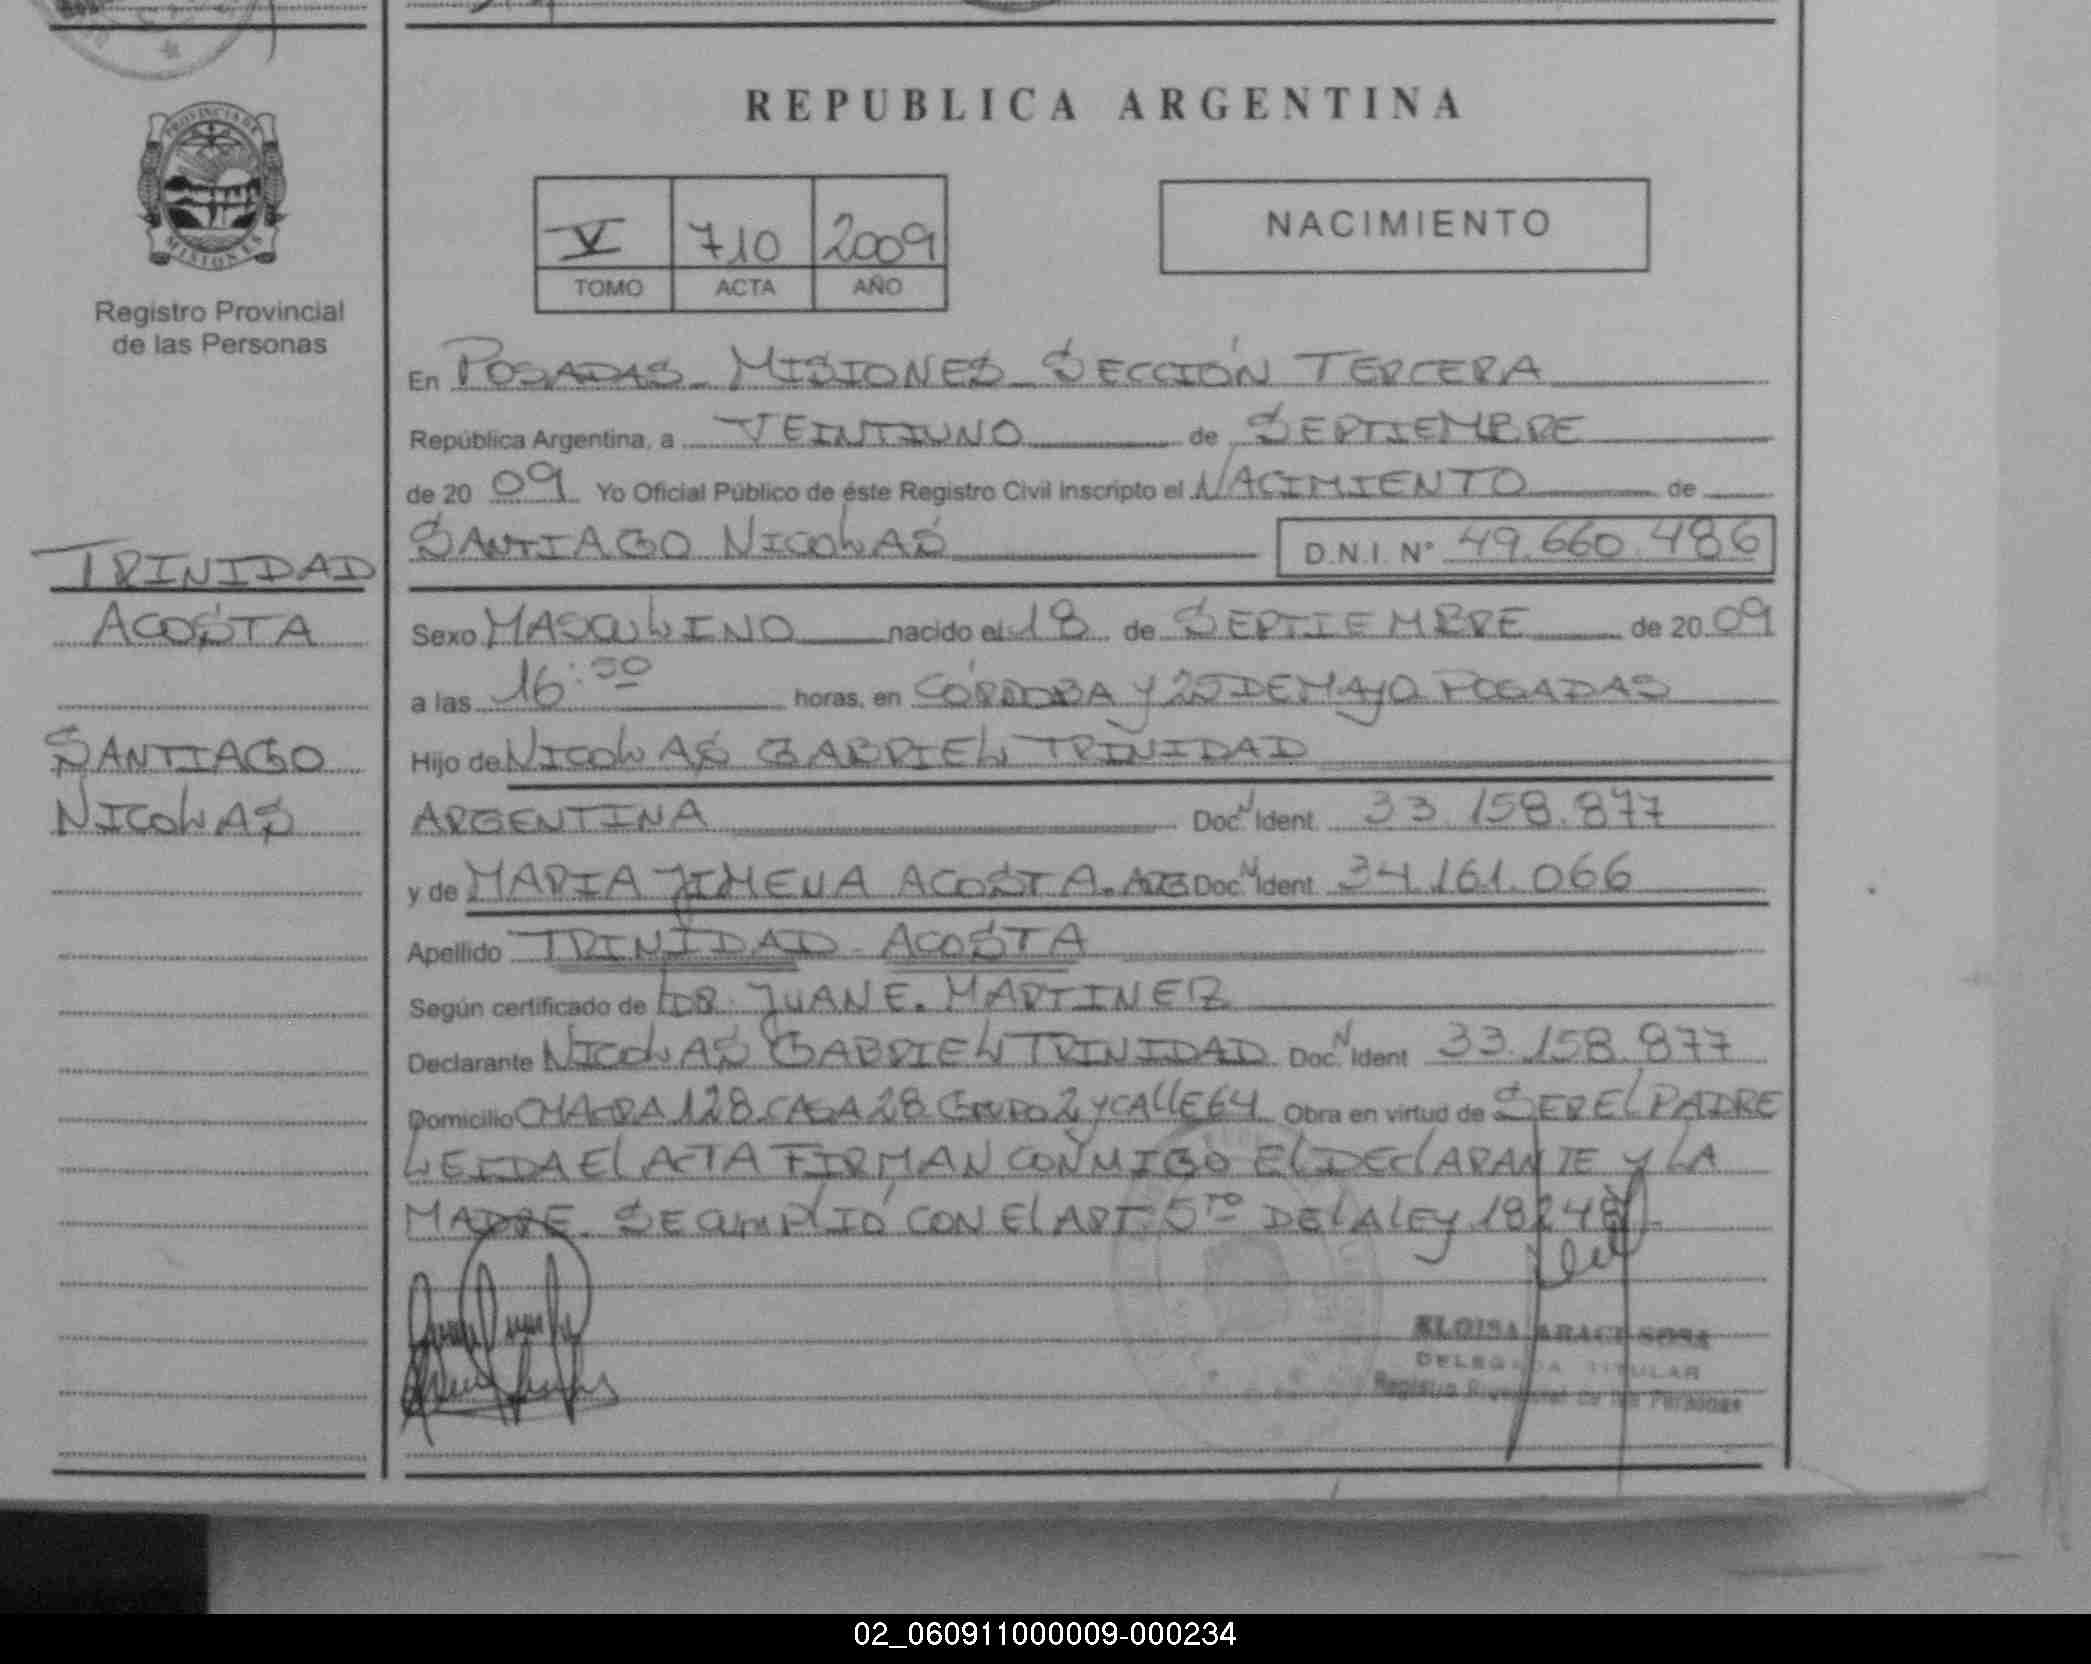 REPUBLICA ARGENTINA
PROVINCIA DE
MISIONES
Registro Provincial
de las Personas
V 710 2009
TOMO ACTA AÑO
NACIMIENTO
En POSADAS MISIONES SECCIÓN TERCERA
República Argentina, a VEINTIUNO de SEPTIEMBRE
de 20 09 Yo Oficial Público de éste Registro Civil inscripto el NACIMIENTO de
SANTIAGO NICOLAS D.N.I. N° 49.660.486
TRINIDAD
ACOSTA
SANTIAGO
NICOLAS
Sexo MASCULINO nacido el 18 de SEPTIEMBRE de 20 09
a las 16:50 horas, en CÓRDOBA Y 25 DE MAYO POSADAS
Hijo de NICOLAS GABRIEL TRINIDAD
ARGENTINA Doc. N Ident 33.158.877
y de MARIA JIMENA ACOSTA. ARG Doc. N Ident 34.161.066
Apellido TRINIDAD ACOSTA
Según certificado de DR. JUAN E. MARTINEZ
Declarante NICOLAS GABRIEL TRINIDAD Doc. N Ident 33.158.877
Domicilio CHACRA 128 CASA 28 GRUPO 2 Y CALLE 64 Obra en virtud de SER EL PADRE
LEIDA EL ACTA FIRMAN CONMIGO EL DECLARANTE Y LA
MADRE. SE CUMPLIÓ CON EL ART. 5TO DE LA LEY 18248
ELOISA ARACI SOSA
DELEGADA TITULAR
Registro Provincial de las Personas
02_060911000009-000234